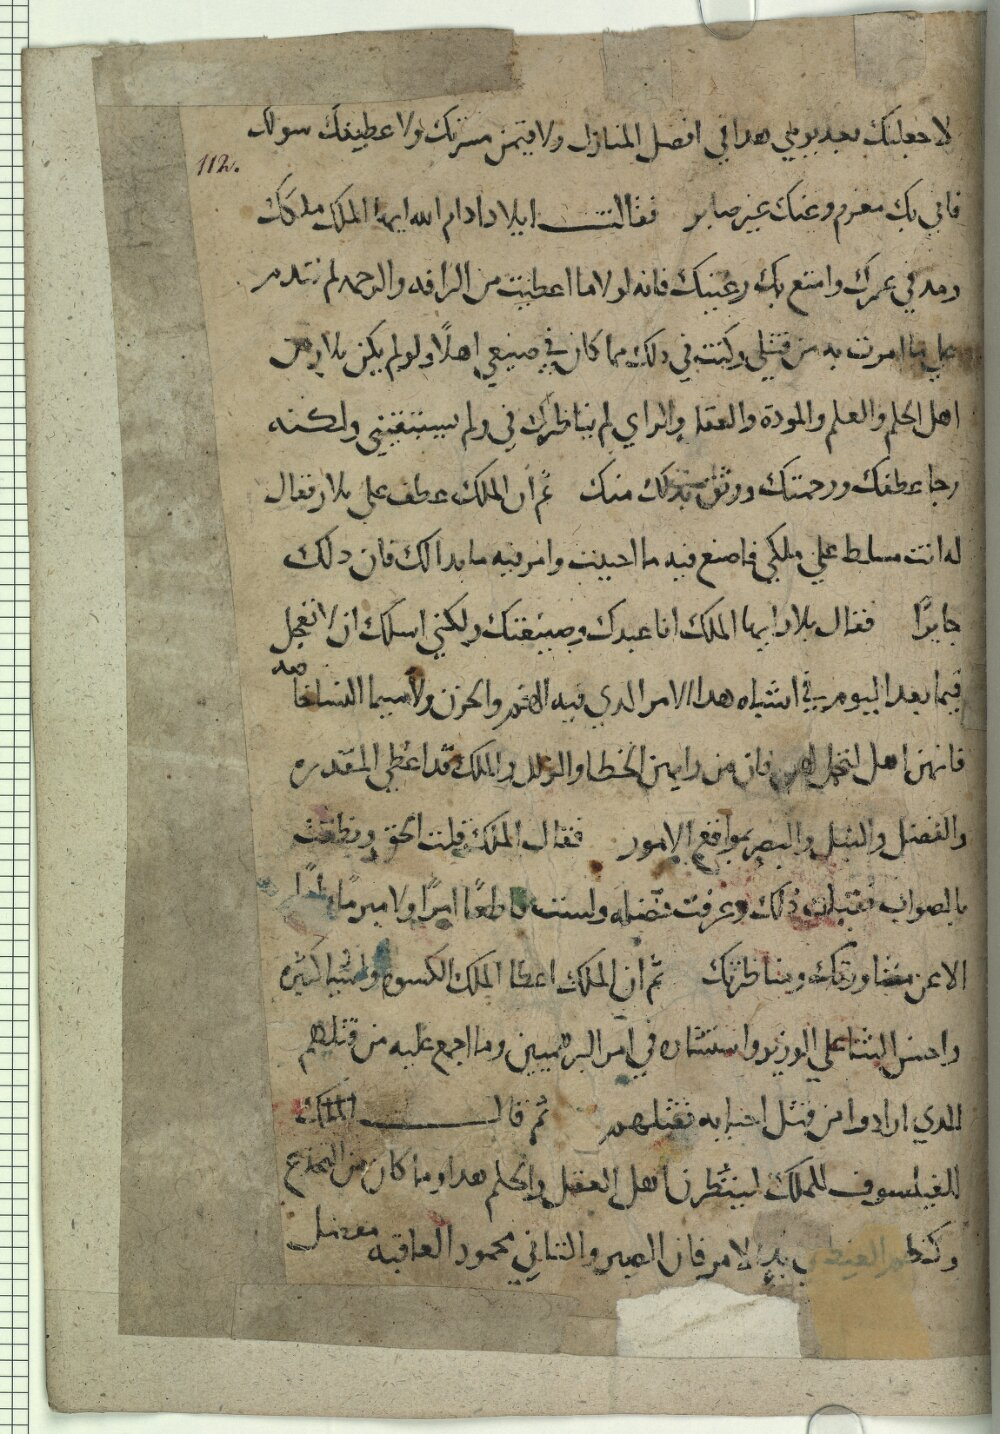 لاجعلنك بعد يومي هدا في افضل المنازل ولاقيمن مسرتك ولاعطينك سولك
112.
فاني بك مغرم وعنك غير صابر فقالت ايلاد ادام الله ايها الملك ملكك
ومد في عمرك وامتع بك رعيتك فانه لولا ما اعطيت من الرافه والرحمه لم تندم
علي ما امرت به من قتلي وكنت في دلك مما كان في صنيعي اهلًا ولو لم يكن بلار من
اهل الحلم والعلم والمودة والعقل والراي لم يناظرك في ولم يستبقيني ولكنه
رجا عطفك ورحمتك ووثق بدلك منك ثم ان الملك عطف علي بلار فقال
له انت مسلط علي ملكي فاصنع فيه ما احببت وامر فيه ما بدا لك فان دلك
جايزًا فقال بلار ايها الملك انا عبدك وصنيعتك ولكني اسلك ان لا تعجل
فيما بعد اليوم في اشباه هدا الامر الدي فيه الغم والحزن ولاسيما النسا خاصه
فانهن اهل فان من رايهن الخطا والزلل والملك قد اعطي المقدره
والفضل والنبل والبصر بمواقع الامور فقال الملك قلت الحق ونطقت
بالصواب فقبلت ذلك وعرفت فضله ولست قاطعًا امرًا ولا مبرمًا
الا عن مشاورتك ومناظرتك ثم ان الملك اعطا الملك الكسوه الكثيره
واحسن الثنا علي الوزير واستشاره في امر البرهميين وما اجمع عليه من قتلهم
للدي ارادوا من قتل احبابه فقتلهم ثم قال الملك
للفيلسوف للملك لينظر اهل العقل والحلم هدا وما كان من
وكظم الغيظ الامر فان الصبر والتاني محمود العاقبه